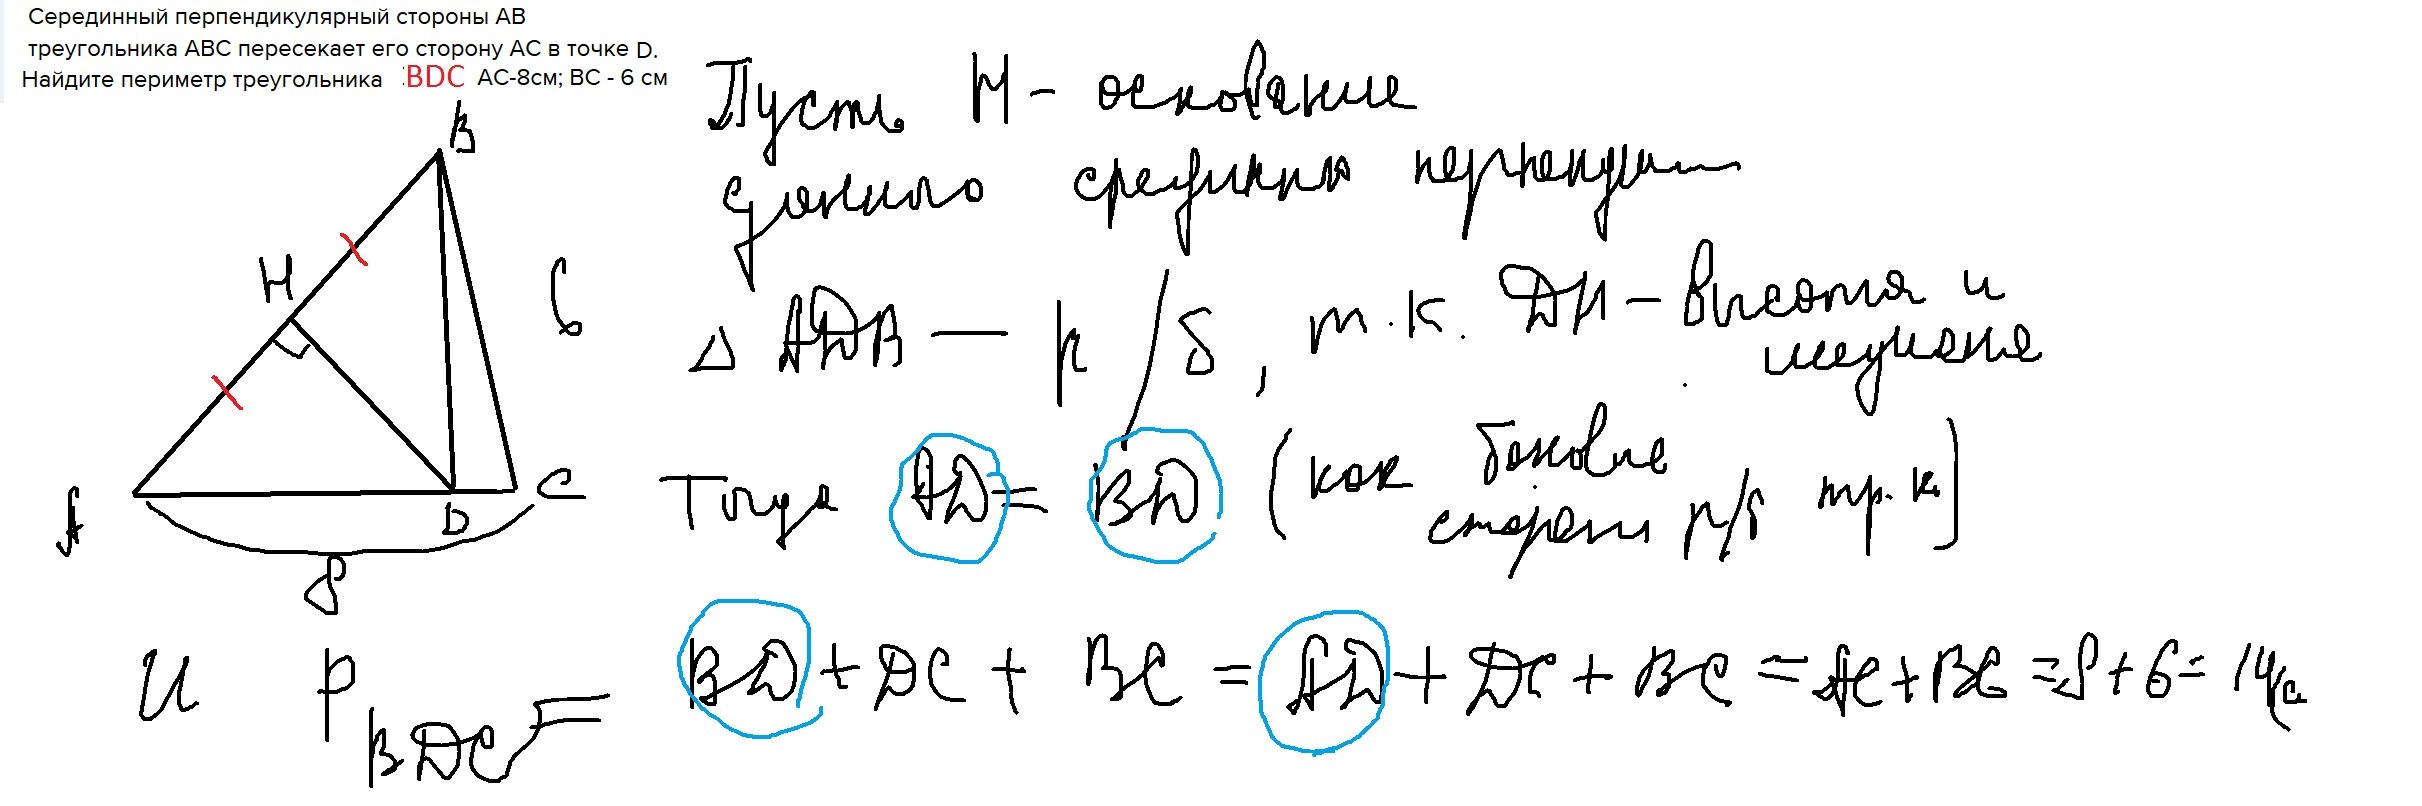 Серединный перпендикулярный стороны АВ
треугольника АВС пересекает его сторону АС в точке D.
Найдите периметр треугольника BDC АС-8см; ВС - 6 см
Пусть H - основание
данного срединн перпендик
Δ ADB — р/б, т.к. DH - высота и
медиана
Тогда AD = BD (как боковые
стороны р/б тр.ка)
B
H
6
A
D
C
8
И P BDC = BD + DC + BC = AD + DC + BC = AC + BC = 8 + 6 = 14